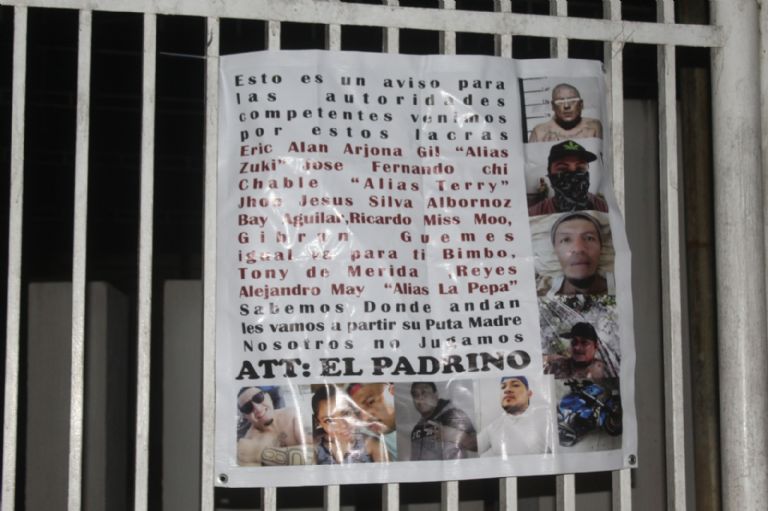 Esto es un aviso para
las autoridades
competentes venimos
por estos lacras
Eric Alan Arjona Gil "Alias
Zuki" Jose Fernando chi
Chable "Alias Terry"
Jhon Jesus Silva Albornoz
Bay Aguilar,Ricardo Miss Moo,
Gibran Guemes
igual va para ti Bimbo,
Tony de Merida Reyes
Alejandro May "Alias La Pepa"
Sabemos Donde andan
les vamos a partir su Puta Madre
Nosotros no Jugamos
ATT: EL PADRINO